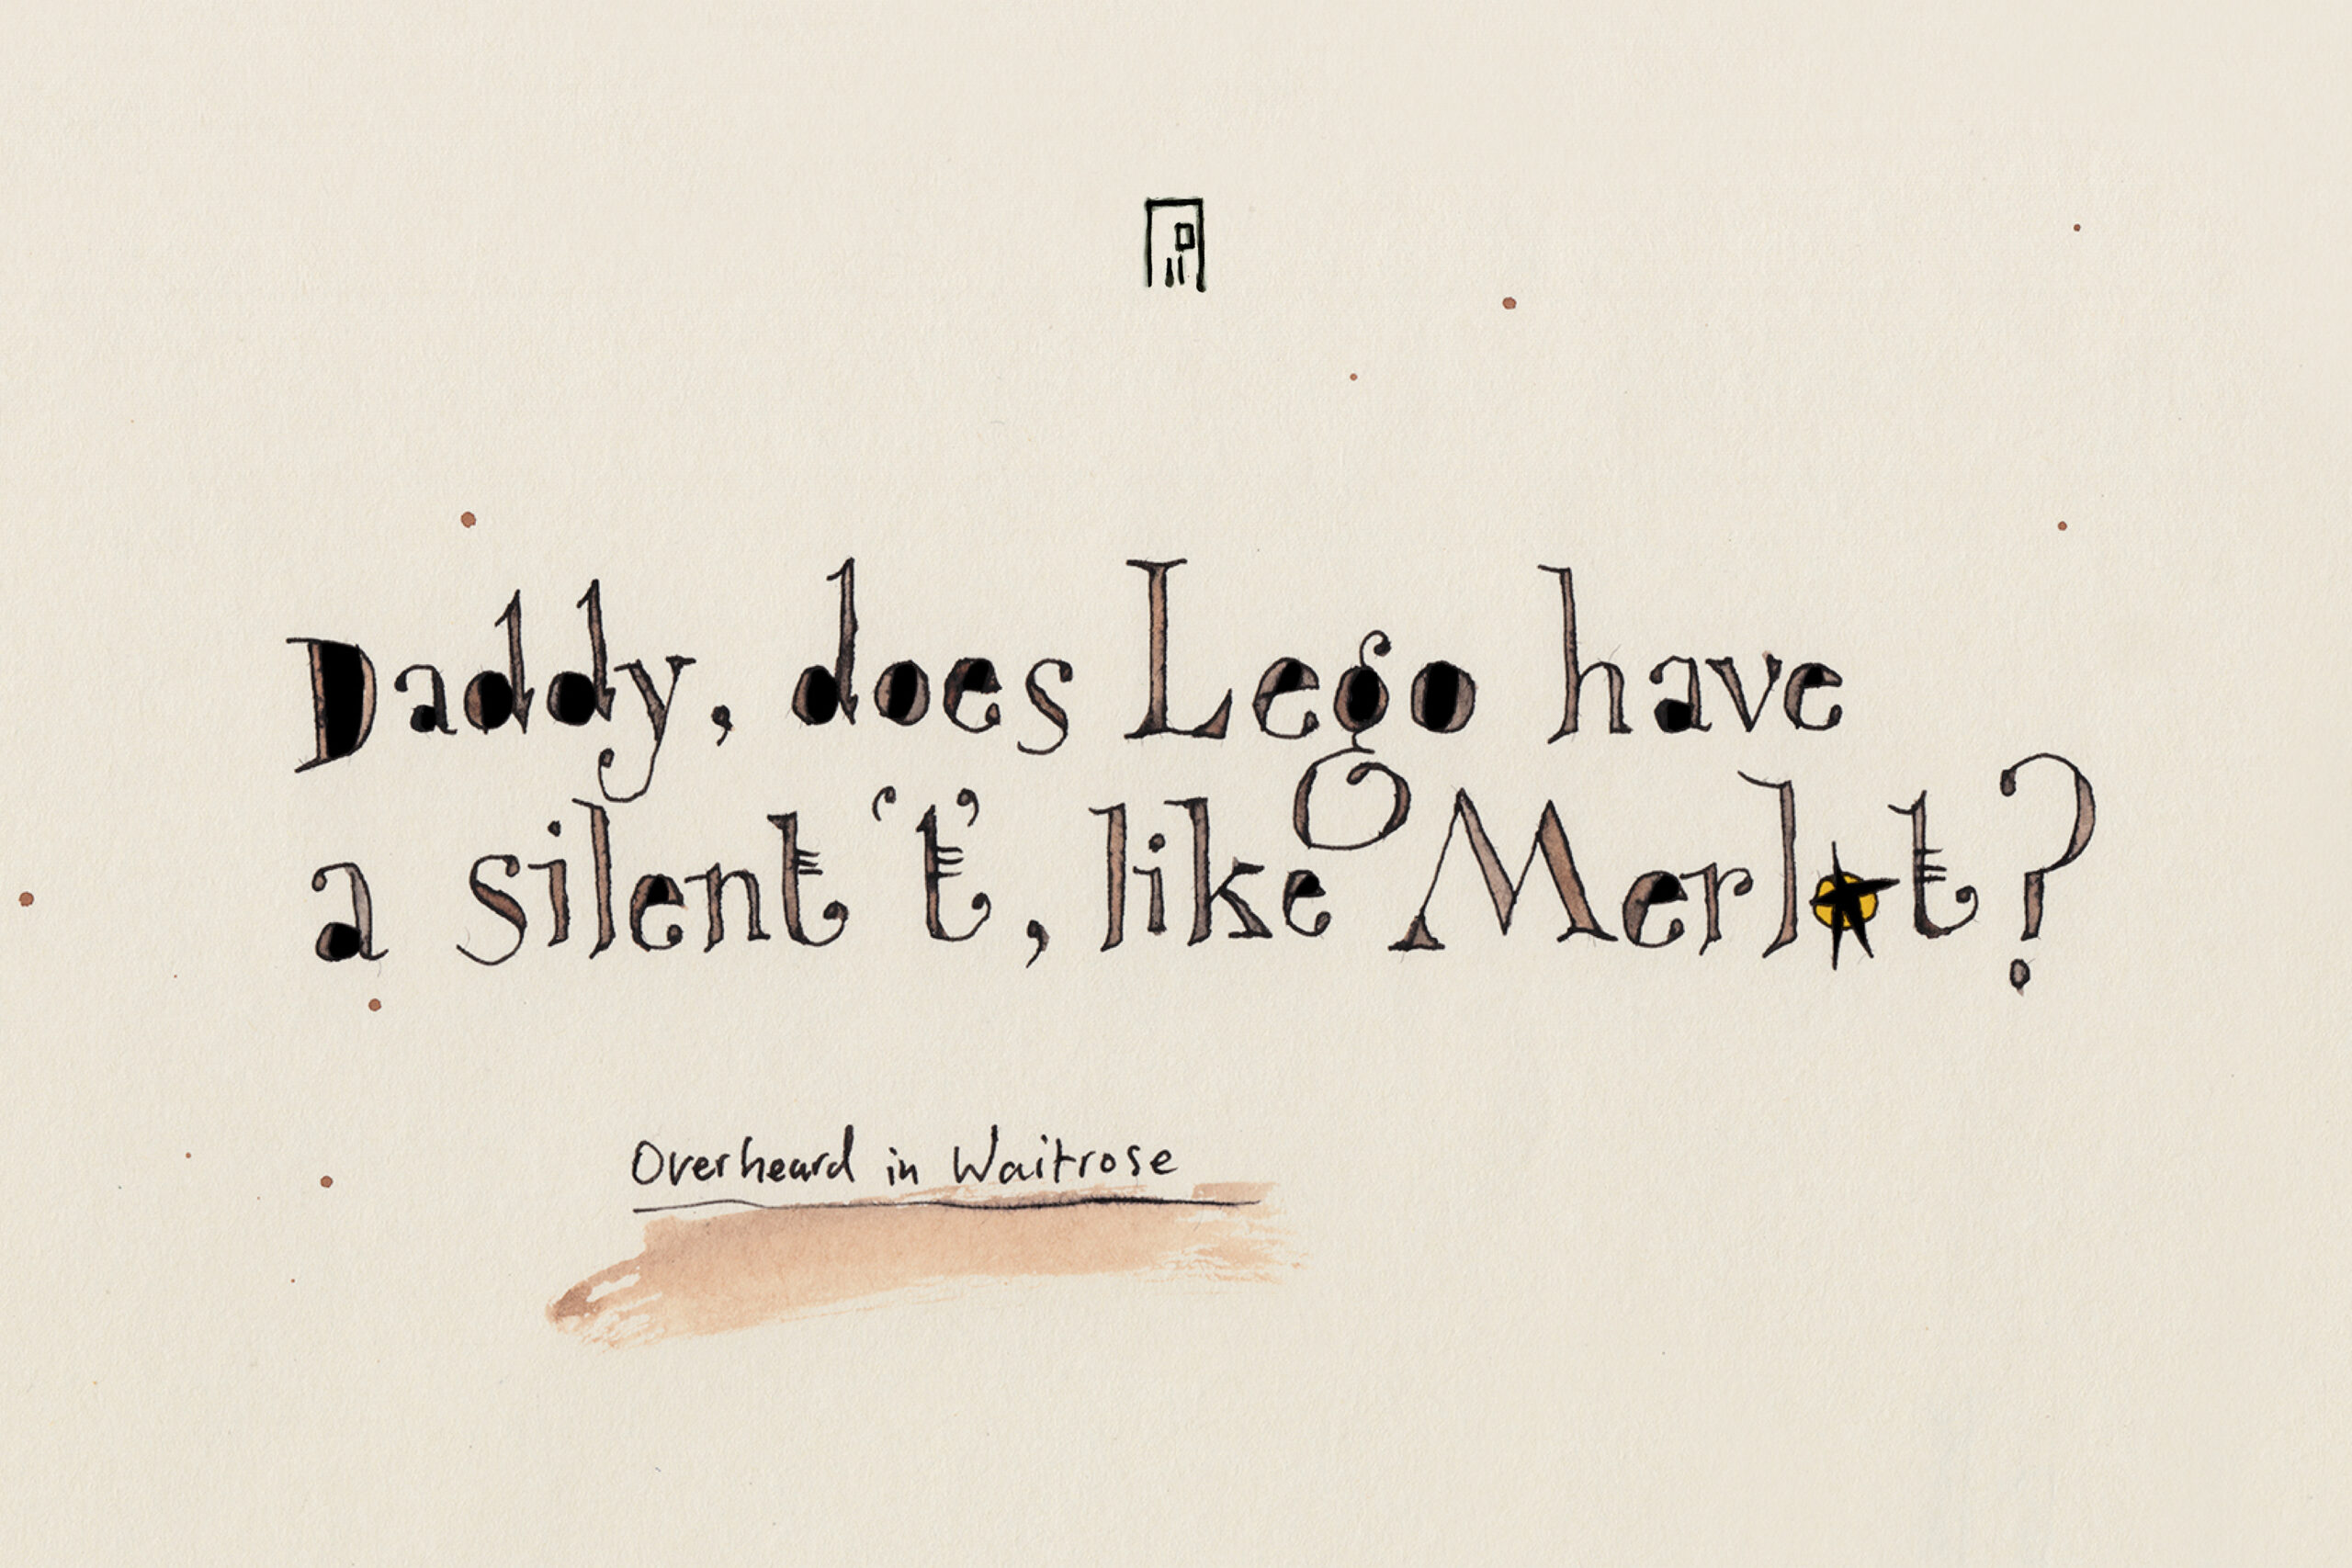 Daddy, does Lego have
a silent ‘t’, like Merlot?
Overheard in Waitrose